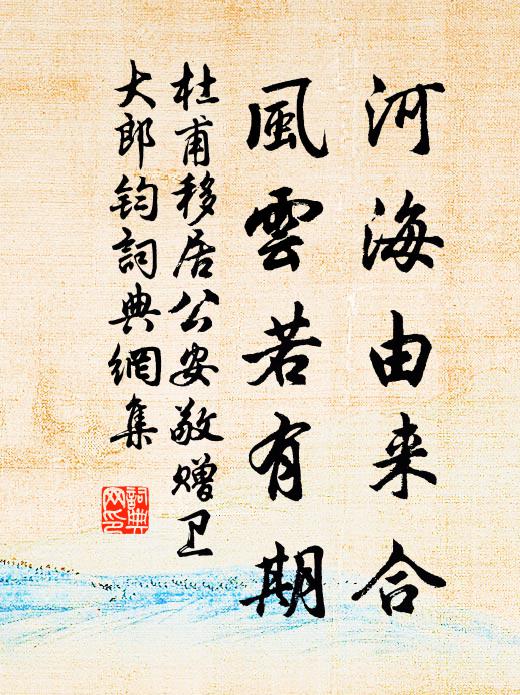 河海由来合
風雲若有期
杜甫移居公安敬赠卫
大郎钧詞典網集
詞典
网印